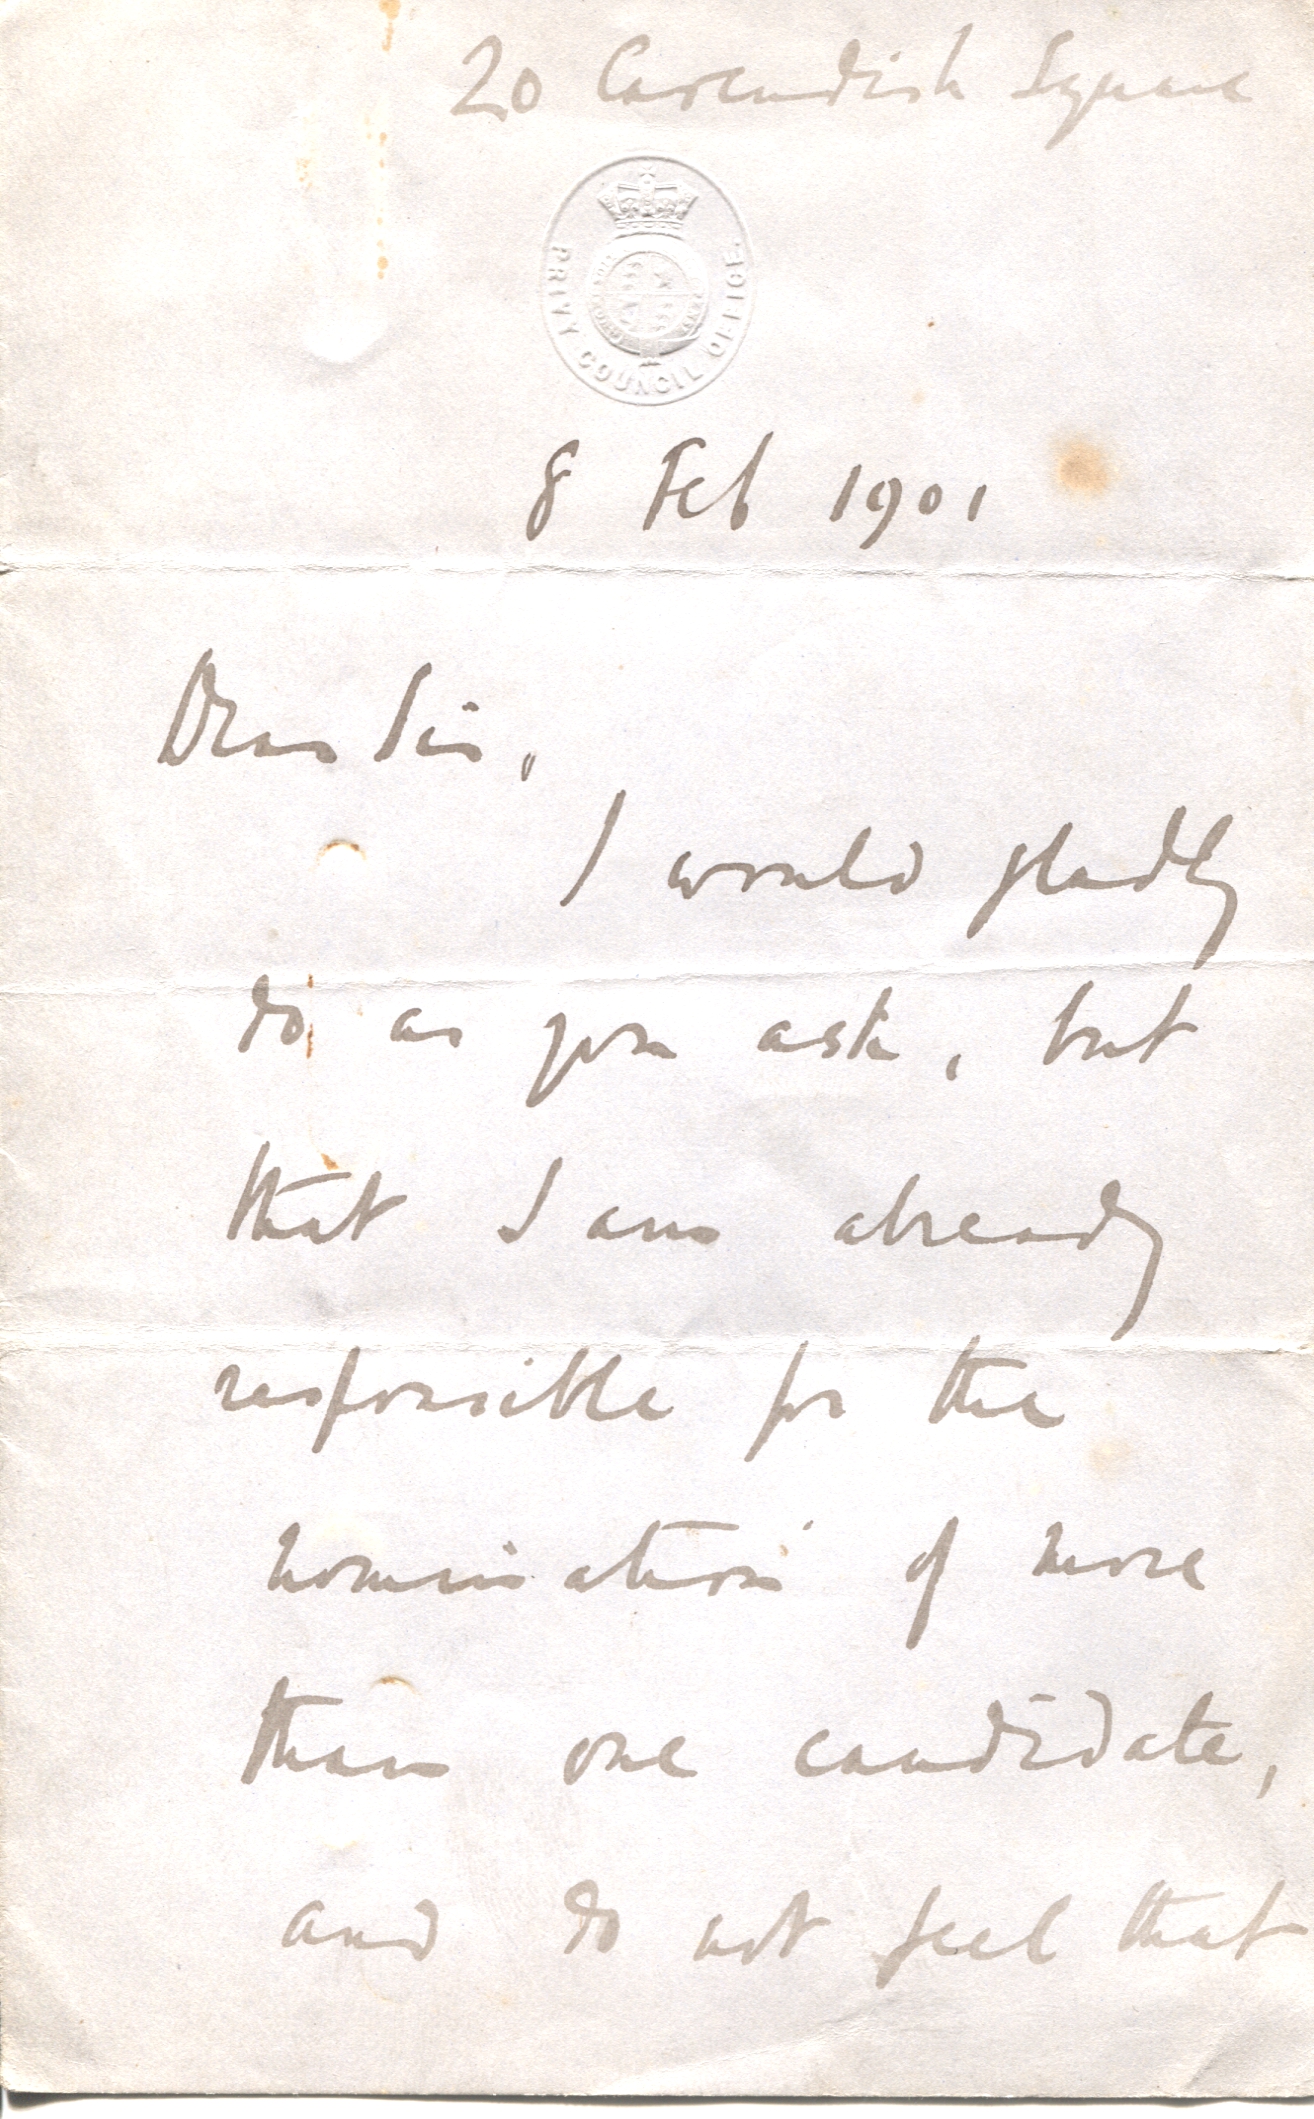 20 Cavendish Square
PRIVY COUNCIL OFFICE
8 Feb 1901
Dear Sir,
I would gladly
do as you ask, but
that I am already
responsible for the
nomination of more
than one candidate,
and do not feel that